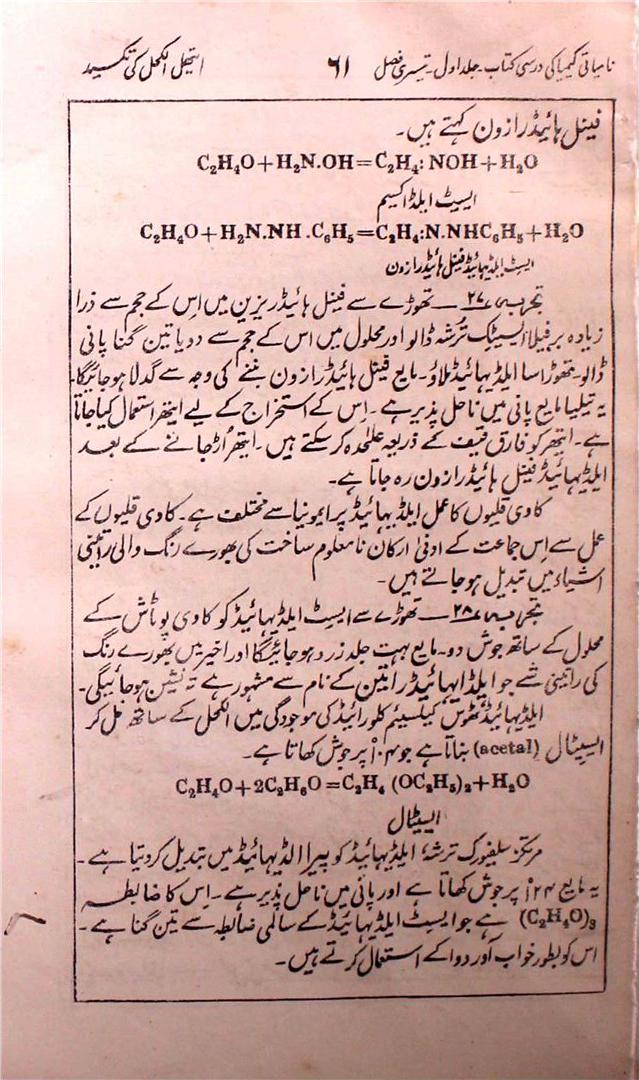 نامیاتی کیمیا کی درسی کتاب۔ جلد اول۔ تیسری فصل ۶۱ ایتھیل الکحل کی تکسید
فینل ہائیڈرازون کہتے ہیں۔
C₂H₄O+H₂N.OH=C₂H₄:NOH+H₂O
ایسیٹ ایلڈاکسیم
C₂H₄O+H₂N.NH.C₆H₅=C₂H₄:N.NHC₆H₅+H₂O
ایسٹ ایلڈیہائیڈ فینل ہائیڈرازون
تجربہ ۲۷ — تھوڑے سے فینل ہائیڈریزین میں اس کے حجم سے ذرا
زیادہ برفیلا ایسیٹک تُرشہ ڈالو اور محلول میں اس کے حجم سے دو یا تین گنا پانی
ڈالو۔ تھوڑا سا ایلڈیہائیڈ ملاؤ۔ مایع فینل ہائیڈرازون بننے کی وجہ سے گدلا ہو جائیگا۔
یہ تیلیا مایع پانی میں ناحل پذیر ہے۔ اِس کے استخراج کے لیے ایتھر استعمال کیا جاتا
ہے۔ ایتھر کو فارق قیف کے ذریعہ علٰحدہ کر سکتے ہیں۔ ایتھر اُڑ جانے کے بعد
ایلڈیہائیڈ فینل ہائیڈرازون رہ جاتا ہے۔
کاوی قلیوں کا عمل ایلڈیہائیڈ پر امونیا سے مختلف ہے۔ کاوی قلیوں کے
عمل سے اِس جماعت کے ادنیٰ ارکان نامعلوم ساخت کی بھورے رنگ والی راتینی
اشیاء میں تبدیل ہو جاتے ہیں۔
تجربہ ۲۸ — تھوڑے سے ایسٹ ایلڈیہائیڈ کو کاوی پوٹاش کے
محلول کے ساتھ جوش دو۔ مایع بہت جلد زرد ہو جائیگا اور اخیر میں بھورے رنگ
کی راتینی شے جو ایلڈیہائیڈ راتین کے نام سے مشہور ہے تہ نشین ہو جائیگی۔
ایلڈیہائیڈ ٹھوس کیلسیئم کلورائیڈ کی موجودگی میں الکحل کے ساتھ مل کر
ایسیٹال (acetal) بناتا ہے جو ۱۰۴° پر جوش کھاتا ہے۔
C₂H₄O+2C₂H₆O=C₂H₄(OC₂H₅)₂+H₂O
ایسیٹال
مرتکز سلفیورک ترشہ ایلڈیہائیڈ کو پیرا الڈیہائیڈ میں تبدیل کر دیتا ہے۔
یہ مایع ۱۲۴° پر جوش کھاتا ہے اور پانی میں ناحل پذیر ہے۔ اِس کا ضابطہ
(C₂H₄O)₃ ہے جو ایسٹ ایلڈیہائیڈ کے سالمی ضابطہ سے تین گنا ہے۔
اس کو بطور خواب آور دوا کے استعمال کرتے ہیں۔